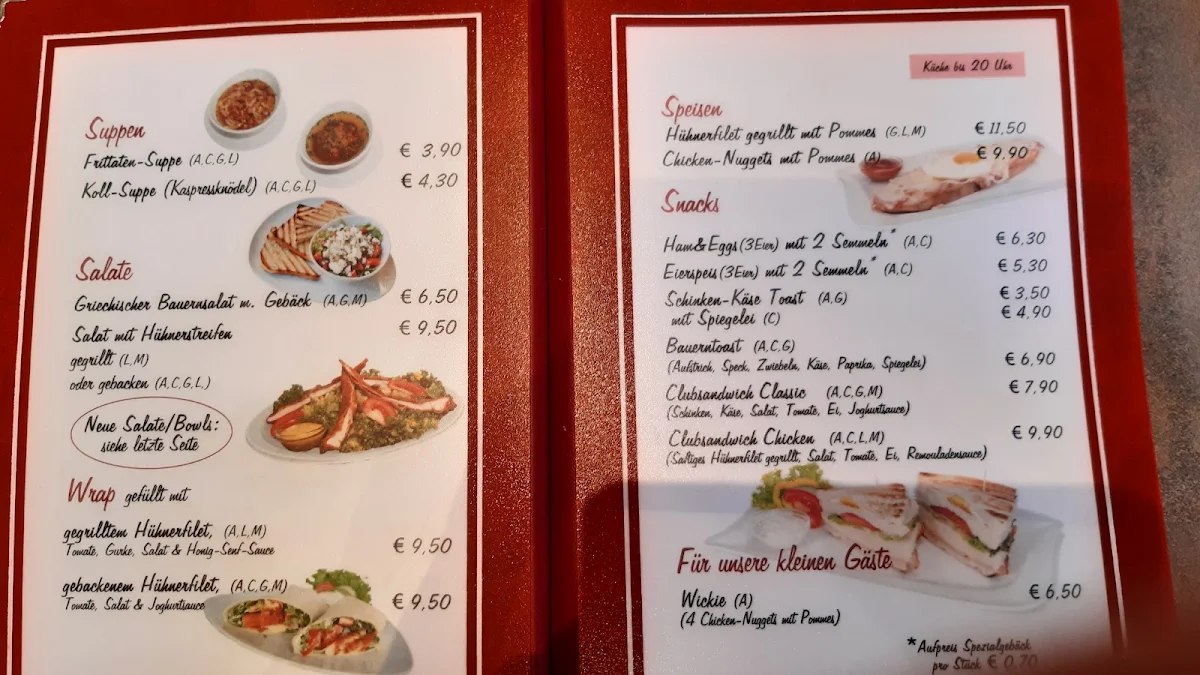 Suppen
Frittaten-Suppe (A,C,G,L) € 3,90
Koll-Suppe (Kaspressknödel) (A,C,G,L) € 4,30
Salate
Griechischer Bauernsalat m. Gebäck (A,G,M) € 6,50
Salat mit Hühnerstreifen € 9,50
gegrillt (L,M)
oder gebacken (A,C,G,L,)
Neue Salate/Bowls:
siehe letzte Seite
Wrap gefüllt mit
gegrilltem Hühnerfilet, (A,L,M)
Tomate, Gurke, Salat & Honig-Senf-Sauce € 9,50
gebackenem Hühnerfilet, (A,C,G,M)
Tomate, Salat & Joghurtsauce € 9,50
Küche bis 20 Uhr
Speisen
Hühnerfilet gegrillt mit Pommes (G,L,M) € 11,50
Chicken-Nuggets mit Pommes (A) € 9,90
Snacks
Ham&Eggs (3Eier) mit 2 Semmeln* (A,C) € 6,30
Eierspeis (3Eier) mit 2 Semmeln* (A,C) € 5,30
Schinken-Käse Toast (A,G) € 3,50
mit Spiegelei (C) € 4,90
Bauerntoast (A,C,G)
(Aufstrich, Speck, Zwiebeln, Käse, Paprika, Spiegelei) € 6,90
Clubsandwich Classic (A,C,G,M) € 7,90
(Schinken, Käse, Salat, Tomate, Ei, Joghurtsauce)
Clubsandwich Chicken (A,C,L,M) € 9,90
(Saftiges Hühnerfilet gegrillt, Salat, Tomate, Ei, Remouladensauce)
Für unsere kleinen Gäste
Wickie (A) € 6,50
(4 Chicken-Nuggets mit Pommes)
*Aufpreis Spezialgebäck
pro Stück € 0,70